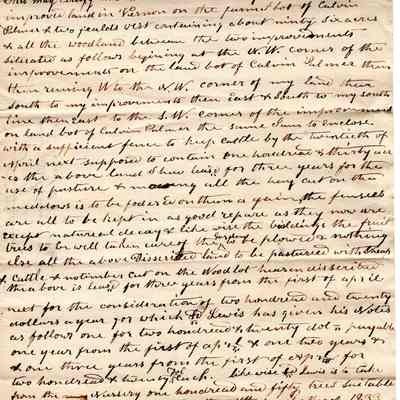 improve land in Vernon on the farm bot of Calvin
Palmer & two fealds west containing about ninty six acres
& all the woodland between the two improvements
siteated as follows begining at the N.W. corner of the
improovements on the land bot of Calvin Palmer then
then runing W to the N.W. corner of my line then
south to my improvements then East & South to my south
line then East to the S.W. corner of the improovement
on land bot of Calvin Palmer the same Lewis to Enclose
with a suficient fence to keep cattle by the twentieth of
April next supposed to contain one hondread & thirty acre
the above land I have leased for three years for the
use of pasture & mowing all the hay cut on the
medolows is to be foder Ed on them again the fences
are all to be kept in as good repare as they now are
except natureal decay & like wise the bildings the fruit
trees to be well taken care of the to be plowed & nothing
else all the above Discribed land to be pastured with sheep
& Cattle & no timber cut on the Wood lot hearein discribed
the above is leased for three years from the first of april
next for the consideration of two hondread and twenty
dollars a year for which Lewis has given his Notes
as follows one for two hondread & twenty dol s payable
one year from the first of apr'l & one two years &
& one three years from the first of apr'l for
two hondread & twenty Dol each. like wise Lewis is to take
from the nursery one hondread and fifty trees suitable